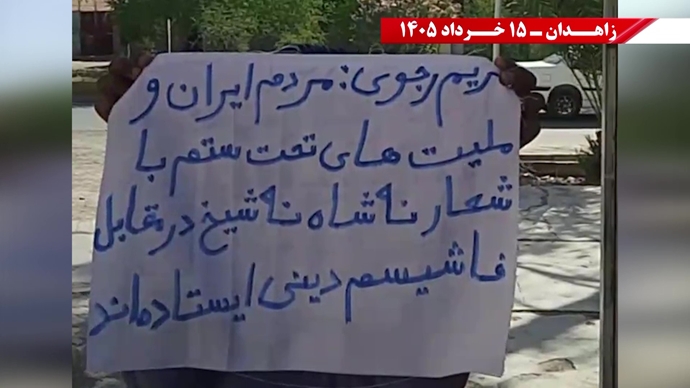 زاهدان ـ ۱۵ خرداد ۱۴۰۵
مریم رجوی: مردم ایران و
ملیت های تحت ستم با
شعار نه شاه نه شیخ در مقابل
فاشیسم دینی ایستاده‌اند